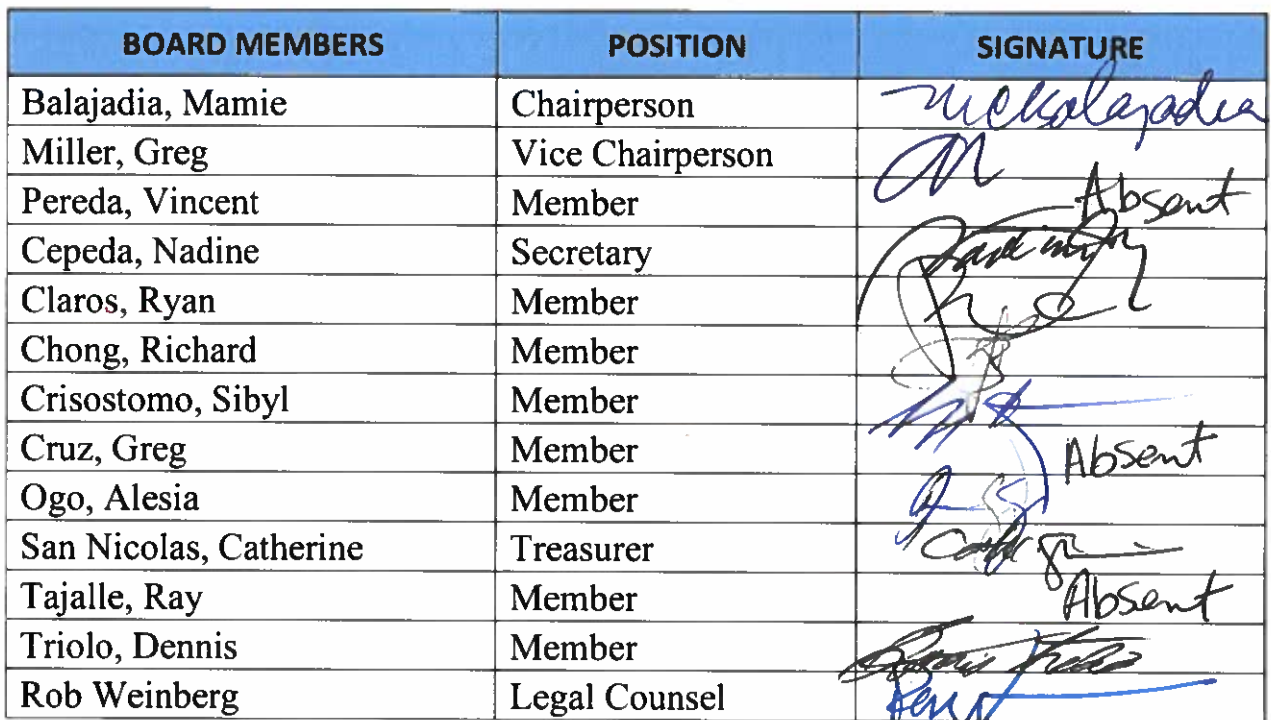 BOARD MEMBERS POSITION SIGNATURE
Balajadia, Mamie Chairperson
Miller, Greg Vice Chairperson
Pereda, Vincent Member Absent
Cepeda, Nadine Secretary
Claros, Ryan Member
Chong, Richard Member
Crisostomo, Sibyl Member
Cruz, Greg Member Absent
Ogo, Alesia Member
San Nicolas, Catherine Treasurer
Tajalle, Ray Member Absent
Triolo, Dennis Member
Rob Weinberg Legal Counsel